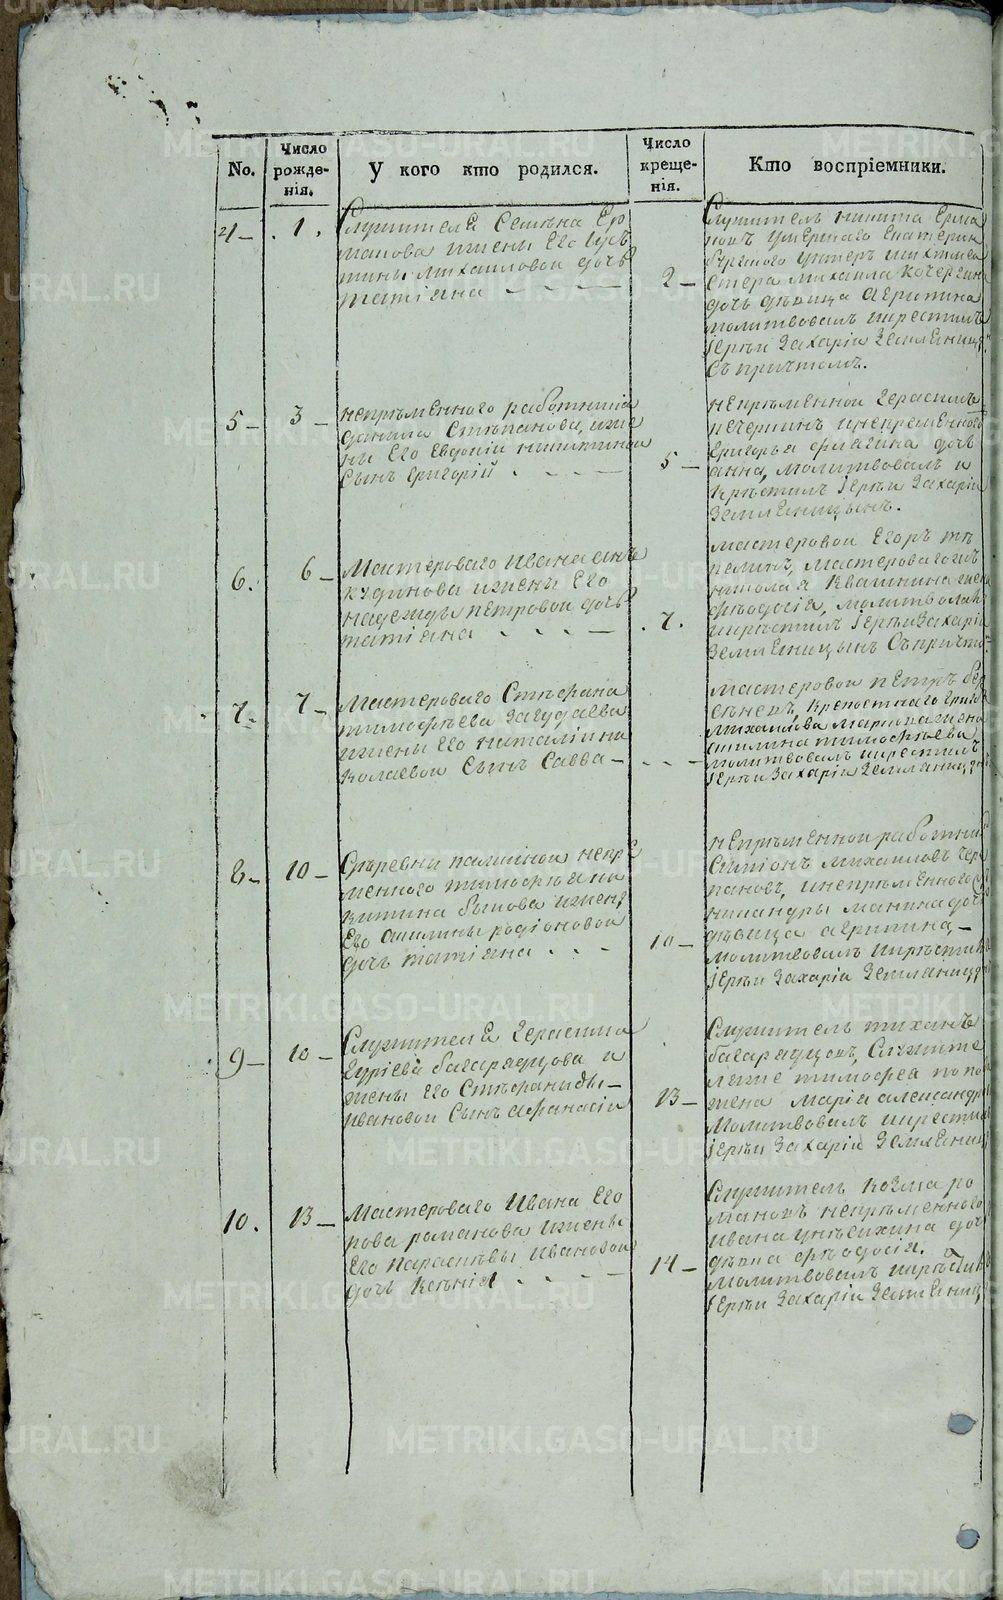 No.
Число рожде-
нія.
У кого кто родился.
Число креще-
нія.
Кто воспріемники.
4 – 1.
Служителя Семѣна Ер
макова ижены Его Иус
тины михаиловой дочь
татіана
2 –
Служитель никита Ерма
ковъ умершаго Екатерин
бургскаго унтеръ шихтмей
стера михаила кочергина
дочь дѣвица агрипина
молитвовалъ икрестилъ
Іерѣи Захаріи Земляницы
съ причтомъ.
5 – 3 –
непрѣменного работника
данила Стѣпанова, иже
ны Его Евдокіи никитиной
Сынъ григорій
5 –
непрѣменной герасимъ
печеркинъ инепременного
григорья дочь
анна, молитвовалъ и
крѣстилъ Іерѣи Захаріи
Земляницынъ.
6. 6 –
Мастероваго ивана
кудинова ижены Его
надежды пѣтровой дочь
татіана
7.
мастеровой Егоръ
мастероваго
николая квашнина жена
ѳѣодосія, молитвовалъ
икрѣстилъ Іерѣи Захаріи
Земляницынъ Съпричто
7 – 7 –
Мастероваго Стѣфана
тимофѣева Загудаева
ижены Его наталіи ни
колаевой Сынъ Савва –
мастеровой пѣтръ
крепостнаго
михаилова
акилина тимофѣева
молитвовалъ икрестилъ
Іерѣи Захаріи Земляницы
8 – 10 –
Съдѣревни палкиной непрѣ
менного тимофѣя ни
китина быкова ижены
Его акилины родіоновой
дочь татіана
10 –
непрѣменной работник
Симіонъ михаиловъ чере
пановъ, инепрѣменного
никандры манина дочь
дѣвица агрипина –
молитвовалъ икрѣстилъ
Іерѣи Захаріи Земляницы
9 – 10 –
Служителя герасима
гуріева багарядцова и
жены Его Стѣфаниды –
ивановой Сынъ афанасіи
13 –
Служитель тиханъ
багарядцовъ, Служите
тимофея попова
жена маріа александр
Молитвовалъ икрести
Іерѣи Захаріи Земляниц
10. 13 –
Мастероваго Ивана Его
рова романова ижены
Его параскѣвы ивановой
дочь Ксѣнія
14 –
Служитель козма ро
мановъ непрѣменного
ивана дочь
дѣвка ѳѣодосія.
молитвовалъ икрѣстил
Іерѣи Захаріи Земляниц
METRIKI.GASO-URAL.RU